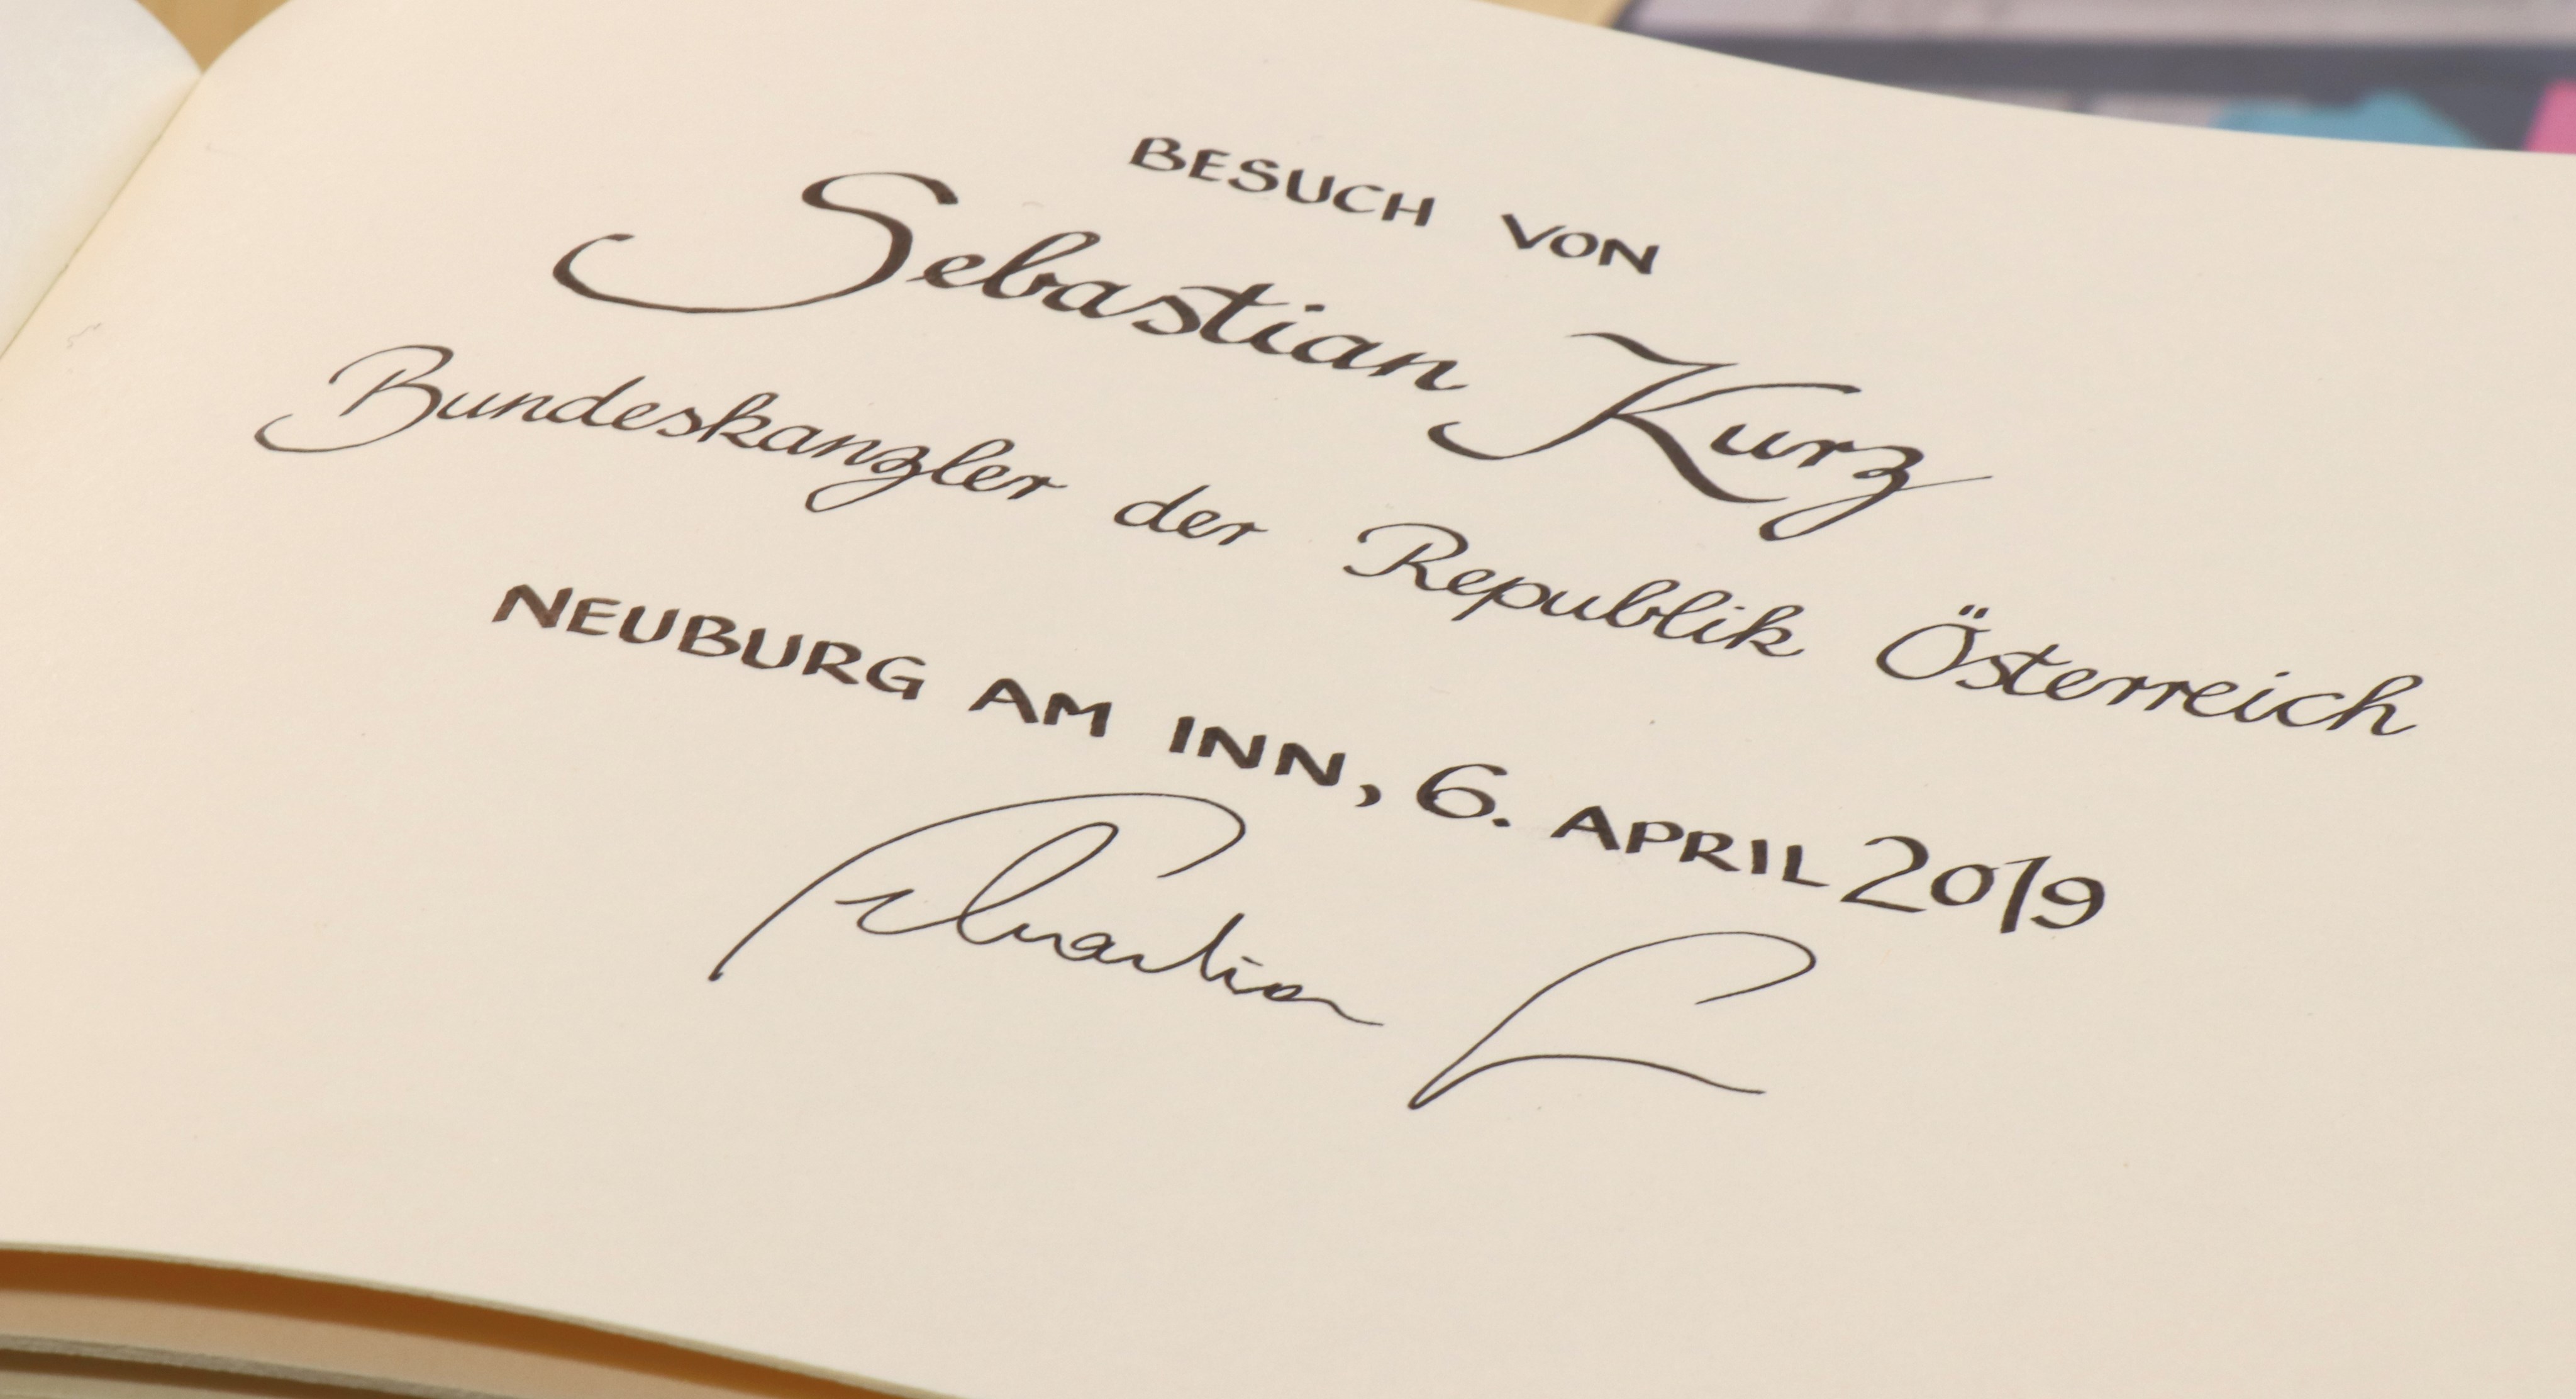 BESUCH VON
Sebastian Kurz
Bundeskanzler der Republik Österreich
NEUBURG AM INN, 6. APRIL 2019